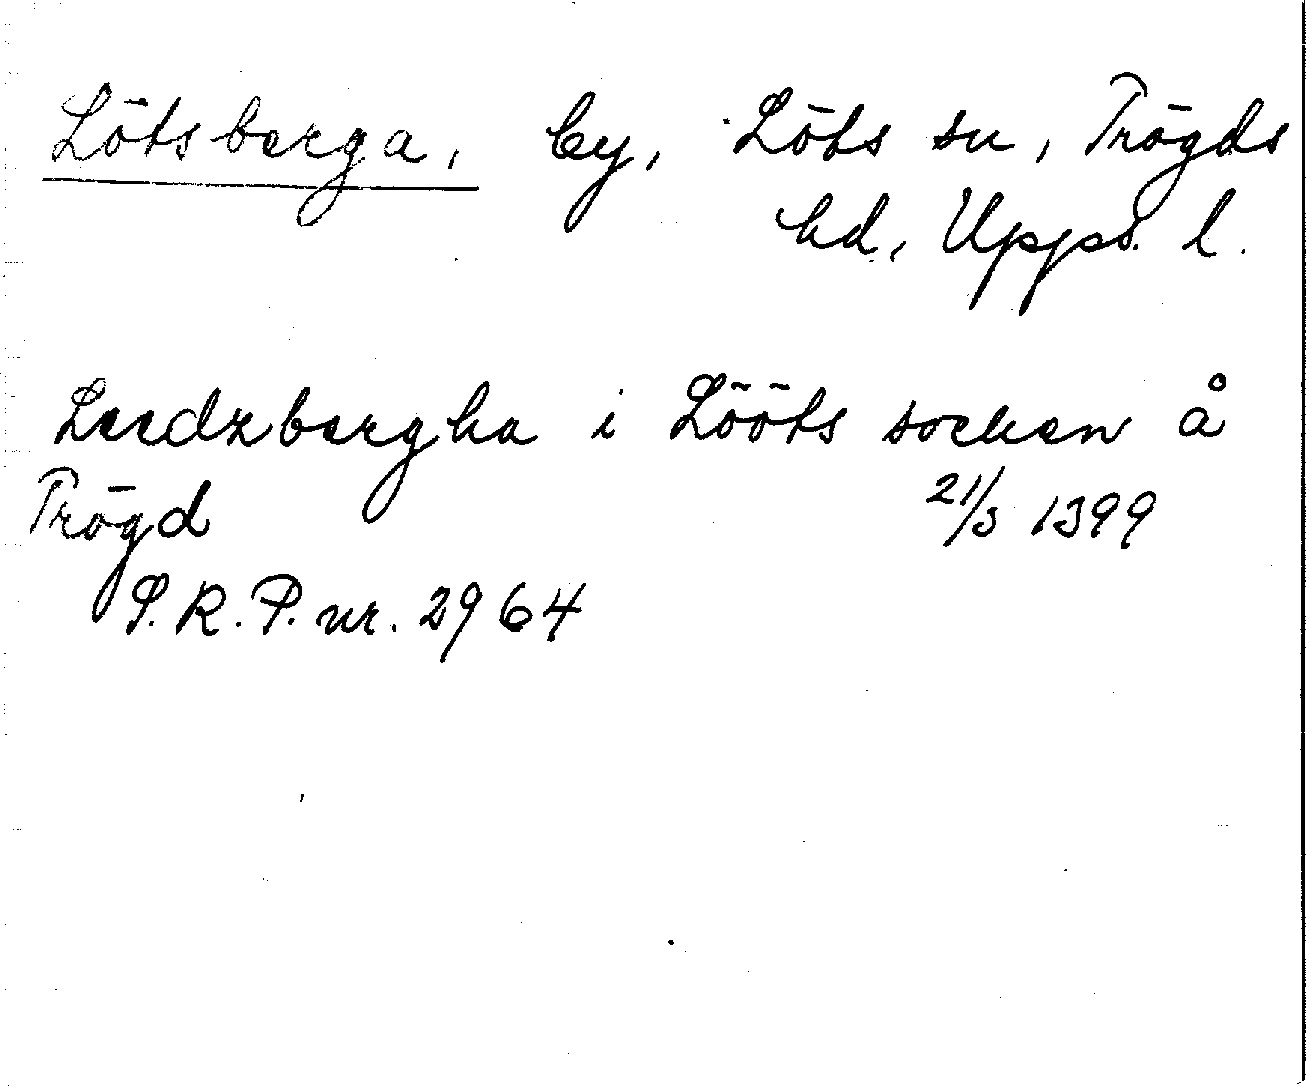 Lötsberga, by, Löts sn, Trögds
hd, Upps. l.
Leedzbergha i Lööts socken å
Trögd 21/3 1399
S.R.P. nr. 2964